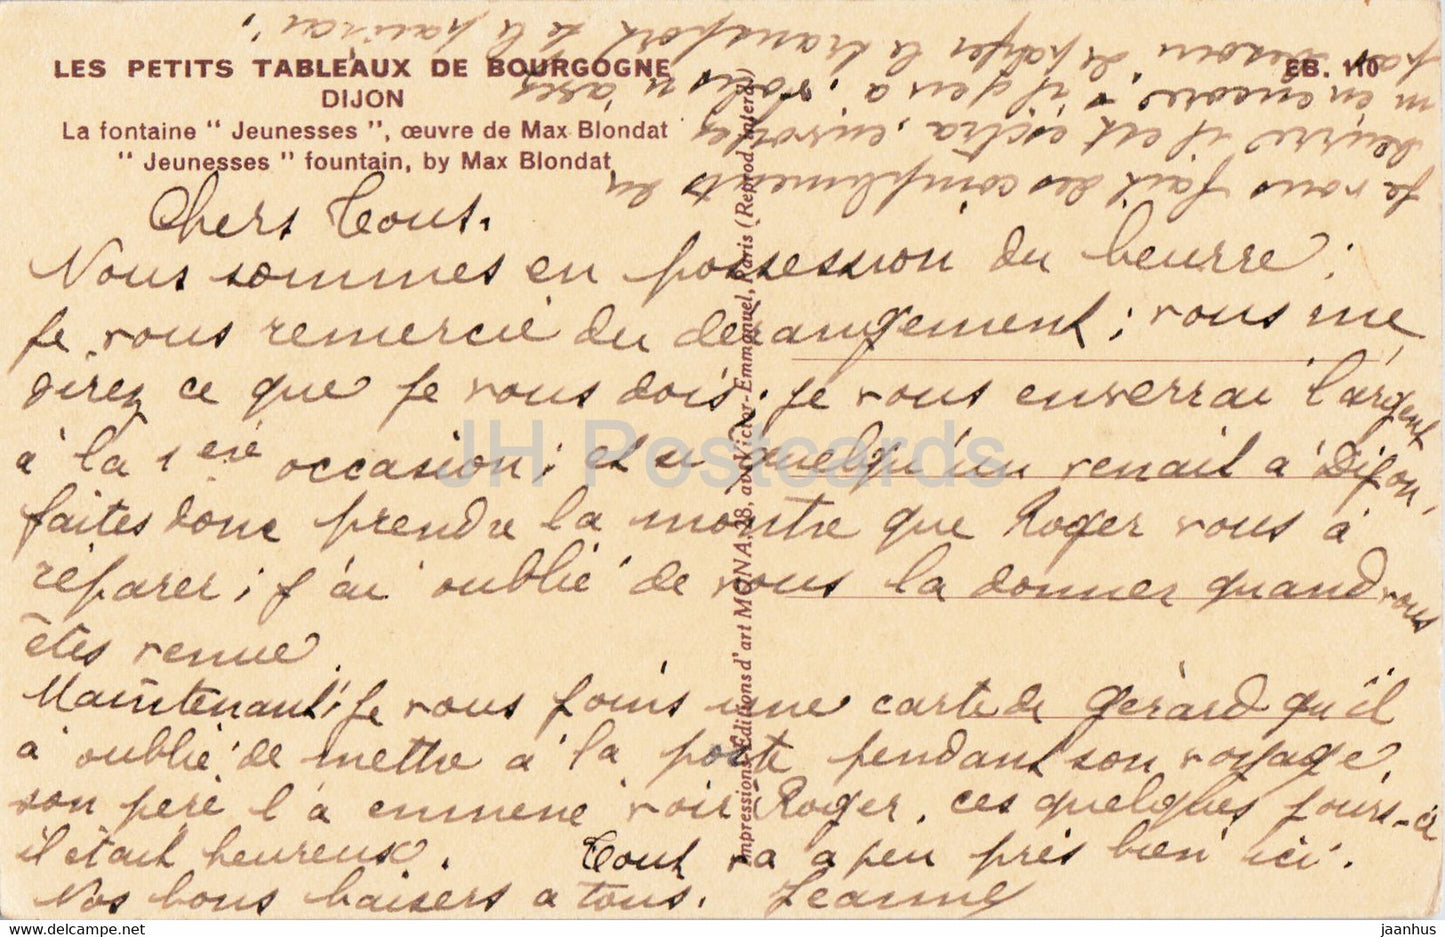 LES PETITS TABLEAUX DE BOURGOGNE
DIJON
La fontaine " Jeunesses ", œuvre de Max Blondat
" Jeunesses " fountain, by Max Blondat
EB. 110
Chers Tous.
Nous sommes en possession du beurre ;
je vous remercie du dérangement ; vous me
direz ce que je vous dois ; je vous enverrai l'argent
à la 1ère occasion ; et si quelqu'un venait à Dijon,
faites donc prendre la montre que Roger vous a
réparer ; j'ai oublié de vous la donner quand vous
êtes venue.
Maintenant je vous joins une carte de Gérard qu'il
a oublié de mettre à la poste pendant son voyage,
son père l'a emmené voir Roger, ces quelques jours-ci
il était heureux. Tout va à peu près bien ici.
Nos bons baisers à tous. Jeanne
Je vous fait des compliments du
beurre il est extra, envoyez
m'en encore, s'il y en a, vous n'avez
pas besoin de payer le transport
Impressions-Editions d'art MONA, 28, av. Victor-Emmanuel, Paris (Reprod. interd.)
JH Postcards
hip-postcard.com
jaanhus